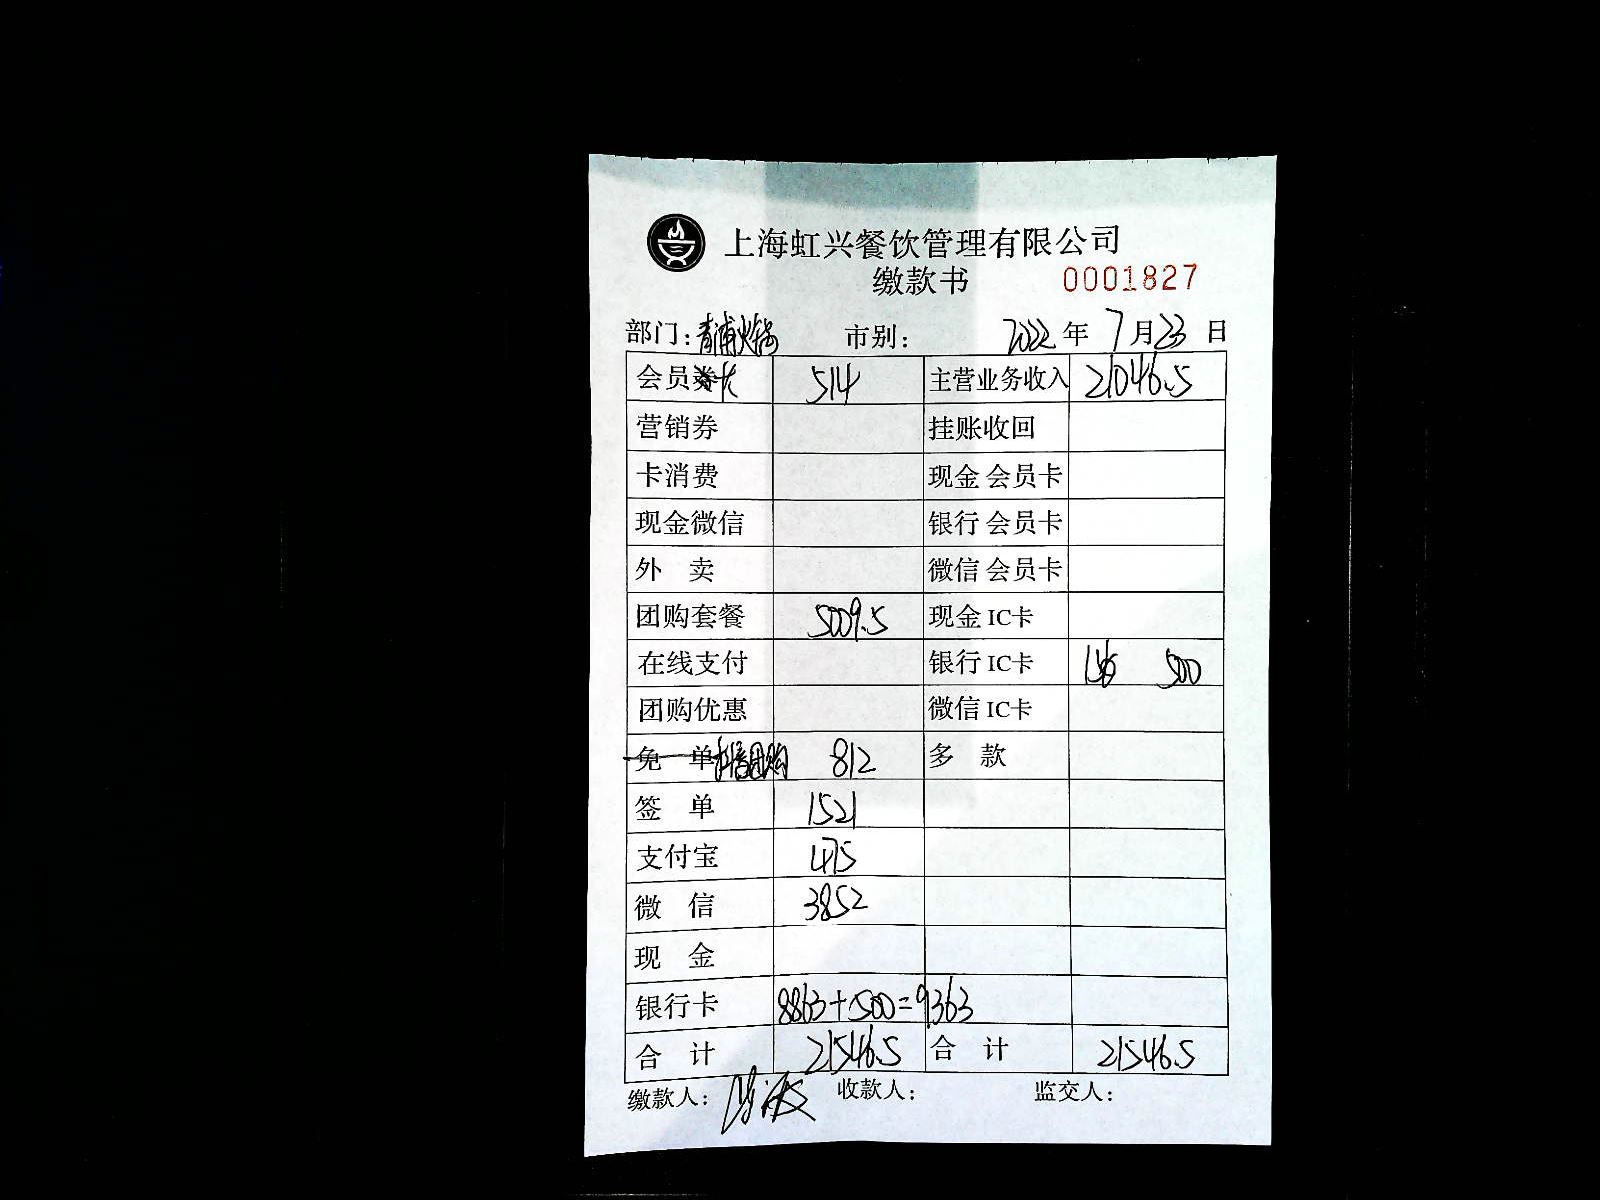 上海虹兴餐饮管理有限公司
缴款书 0001827
部门: 青浦火锅 市别: 2022 年 7 月 23 日
会员卡 514 主营业务收入 21046.5
营销券 挂账收回
卡消费 现金 会员卡
现金微信 银行 会员卡
外 卖 微信 会员卡
团购套餐 5009.5 现金 IC卡
在线支付 银行 IC卡 500
团购优惠 微信 IC卡
免 单 抖音团购 812 多 款
签 单 1521
支付宝 475
微 信 3852
现 金
银行卡 8863+500=9363
合 计 21546.5 合 计 21546.5
缴款人: 收款人: 监交人: